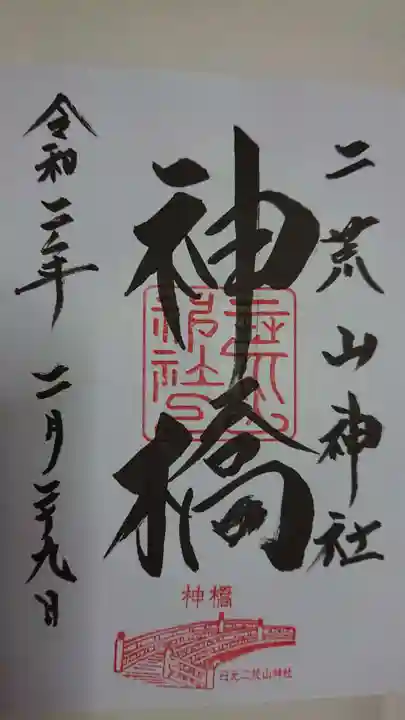 二荒山神社
神橋
令和二年 二月二十九日
神橋
日光二荒山神社